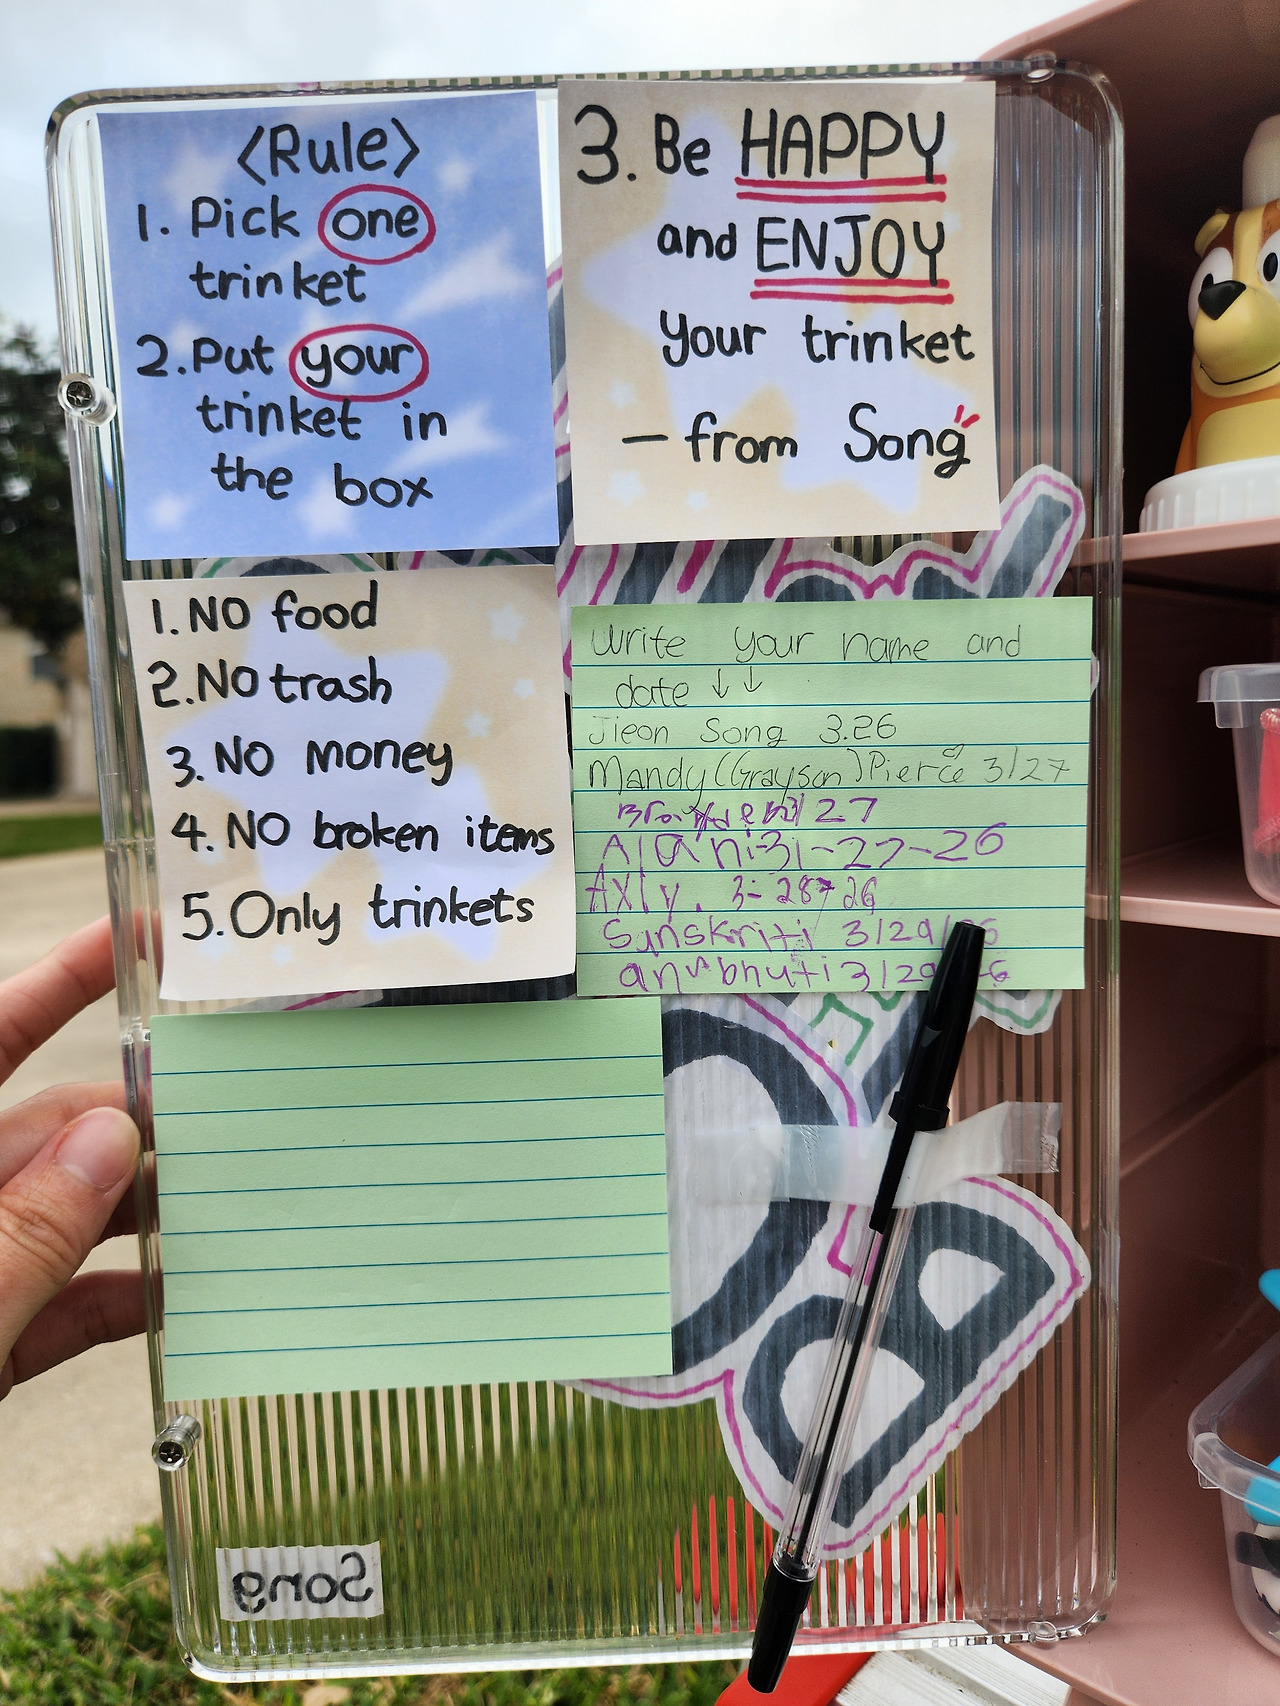 <Rule>
1. Pick one
trinket
2. Put your
trinket in
the box
3. Be HAPPY
and ENJOY
your trinket
- from Song
1. NO food
2. NO trash
3. NO money
4. NO broken items
5. Only trinkets
Write your name and
date ↓↓
Jieon Song 3.26
Mandy (Grayson) Pierce 3/27
27
Alani 3-27-26
Axly. 3-28-26
Sanskriti 3/29/26
anubhuti 3/29
Song